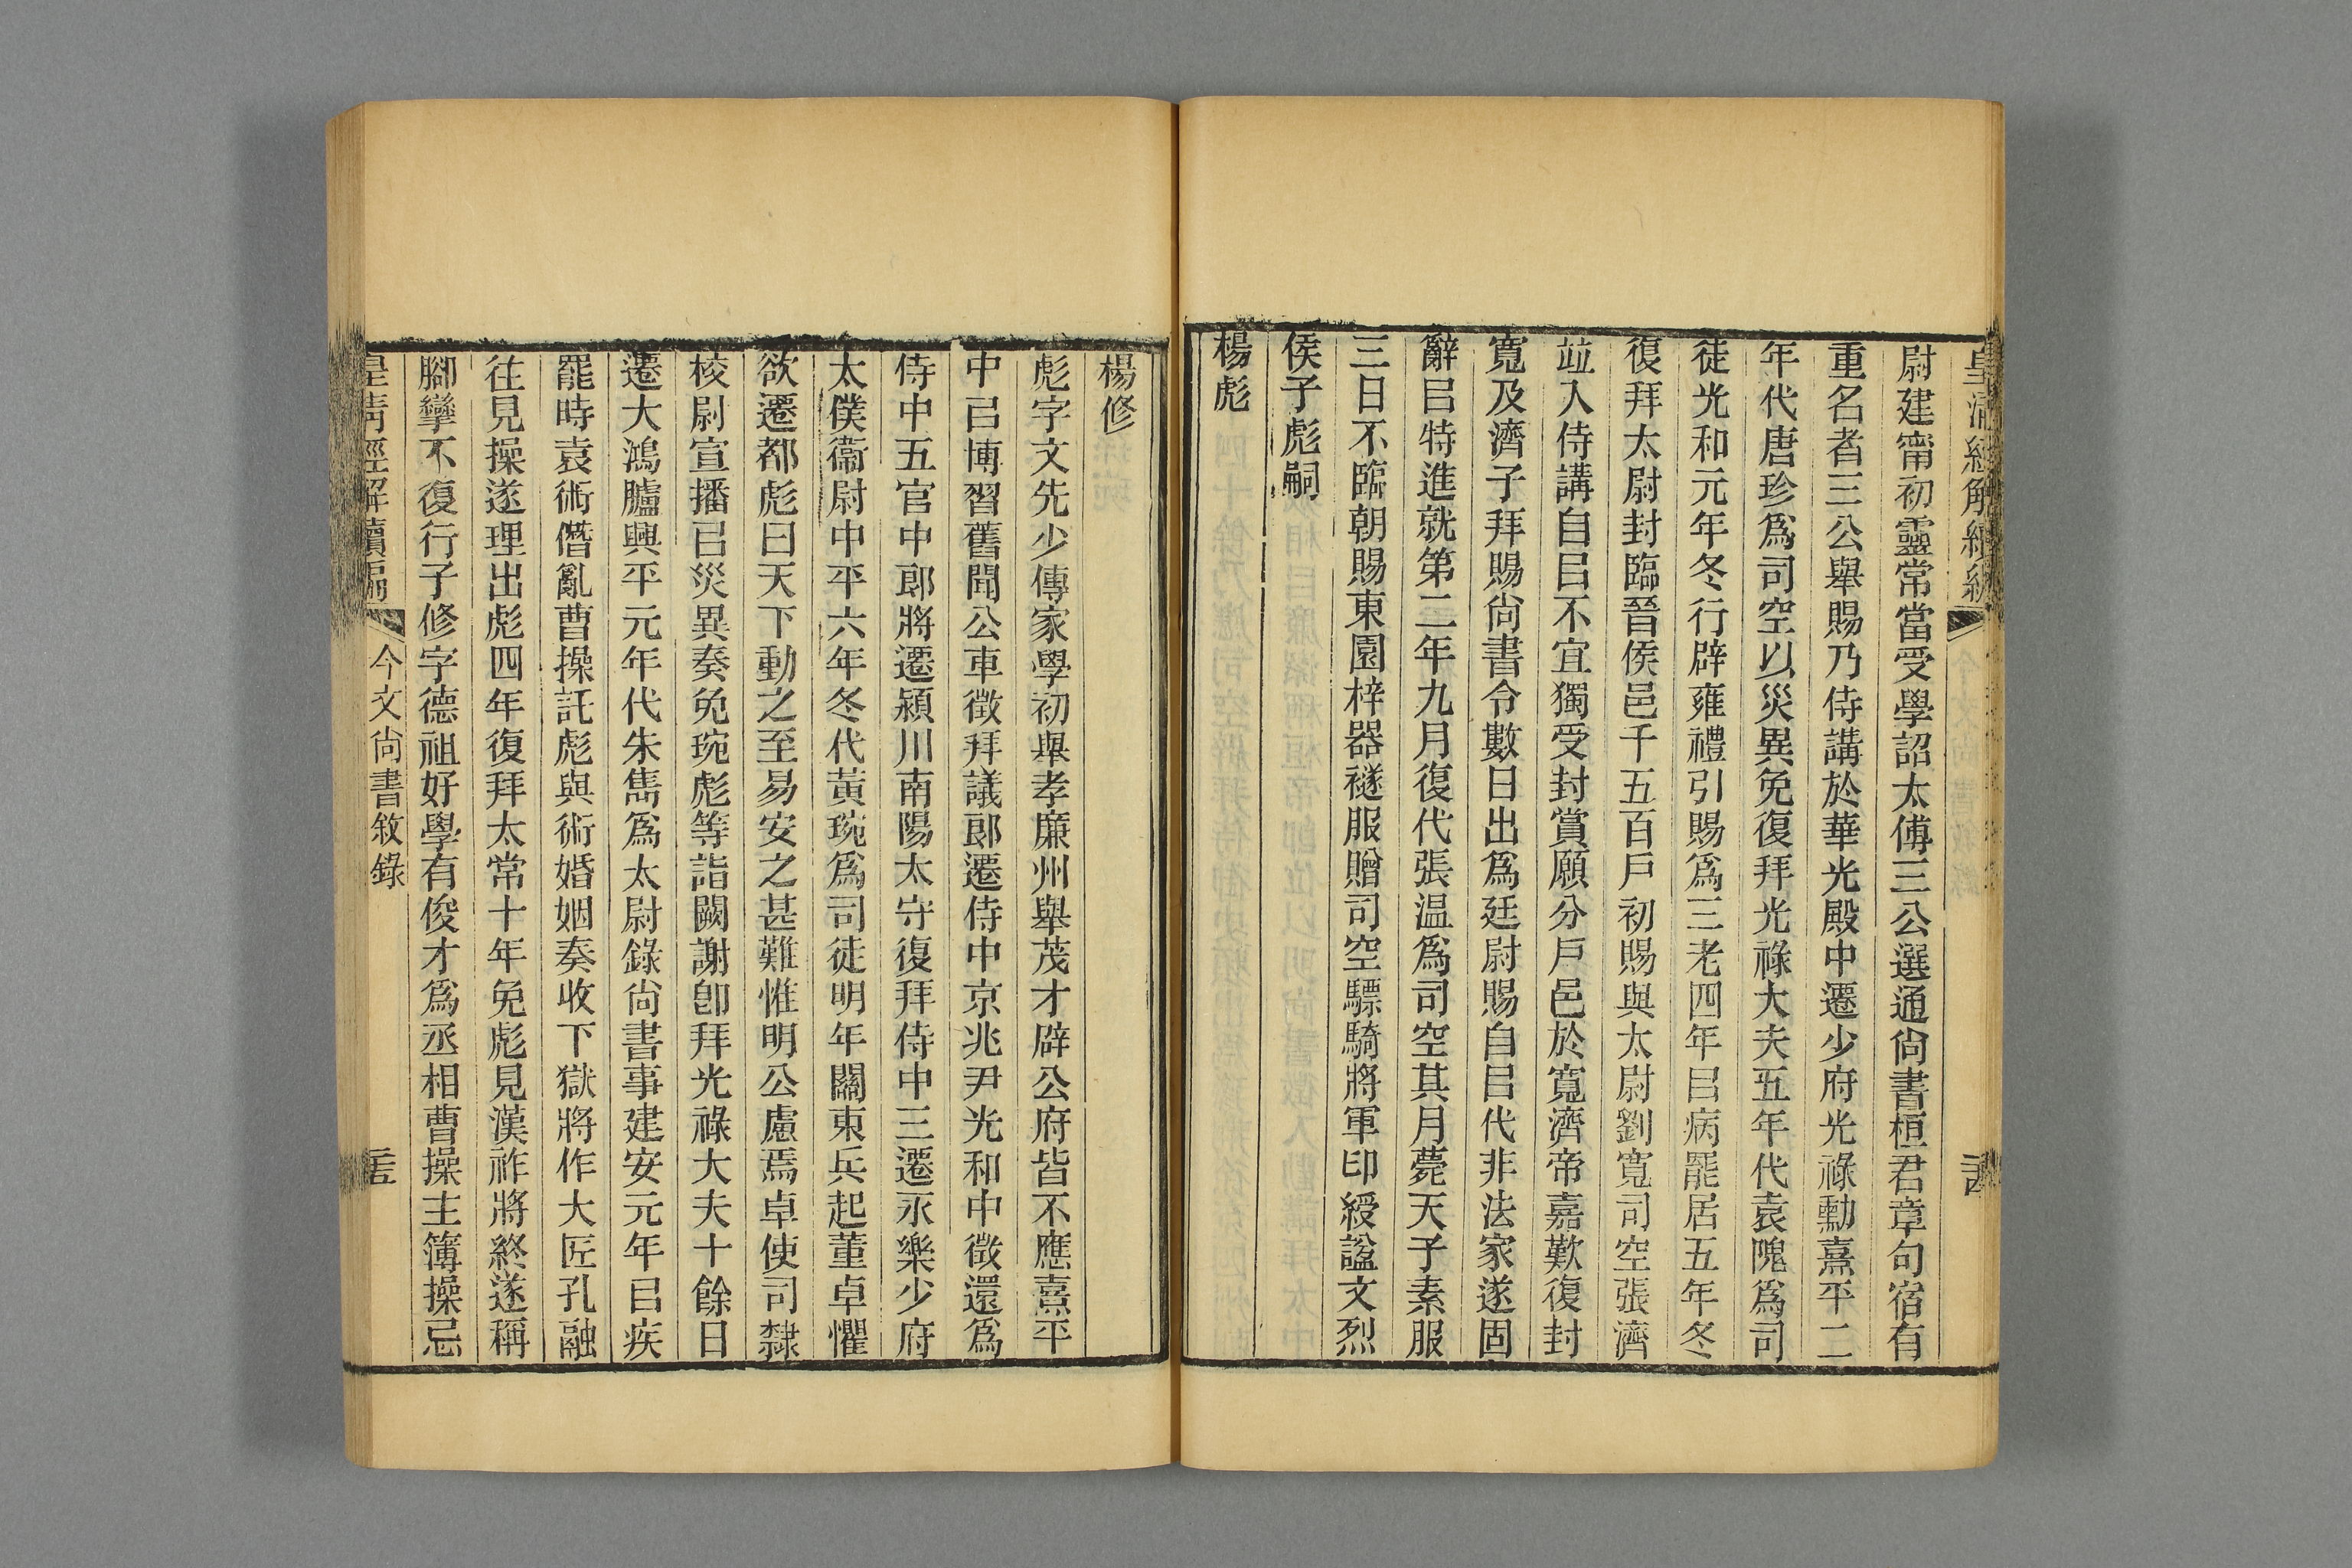 皇清經解續編
尉建甯初靈常當受學詔太傅三公選通尙書桓君章句宿有
重名者三公舉賜乃侍講於華光殿中遷少府光祿勳熹平二
年代唐珍爲司空以災異免復拜光祿大夫五年代袁隗爲司
徒光和元年冬行辟雍禮引賜爲三老四年㠯病罷居五年冬
復拜太尉封臨晉侯邑千五百戶初賜與太尉劉寬司空張濟
竝入侍講自㠯不宜獨受封賞願分戶邑於寬濟帝嘉歎復封
寬及濟子拜賜尙書令數日出爲廷尉賜自㠯代非法家遂固
辭㠯特進就第二年九月復代張温爲司空其月薨天子素服
三日不臨朝賜東園梓器襚服贈司空驃騎將軍印綬諡文烈
侯子彪嗣
楊彪
楊修
彪字文先少傳家學初舉孝廉州舉茂才辟公府皆不應熹平
中㠯博習舊聞公車徵拜議郎遷侍中京兆尹光和中徵還爲
侍中五官中郎將遷潁川南陽太守復拜侍中三遷永樂少府
太僕衞尉中平六年冬代黃琬爲司徒明年關東兵起董卓懼
欲遷都彪曰天下動之至易安之甚難惟明公慮焉卓使司隸
校尉宣播㠯災異奏免琬彪等詣闕謝卽拜光祿大夫十餘日
遷大鴻臚興平元年代朱雋爲太尉錄尙書事建安元年㠯疾
罷時袁術僭亂曹操託彪與術婚姻奏收下獄將作大匠孔融
往見操遂理出彪四年復拜太常十年免彪見漢祚將終遂稱
腳攣不復行子修字德祖好學有俊才爲丞相曹操主簿操忌
皇清經解續編 今文尙書敘錄 二五